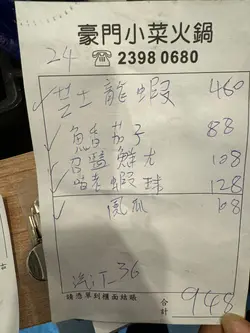 豪門小菜火鍋
24 ☎ 2398 0680
芝士龍蝦 460
魚香茄子 88
鮮尤 108
蝦球 128
鳳爪 68
汽江 36
請憑單到櫃面結賬
合計 948